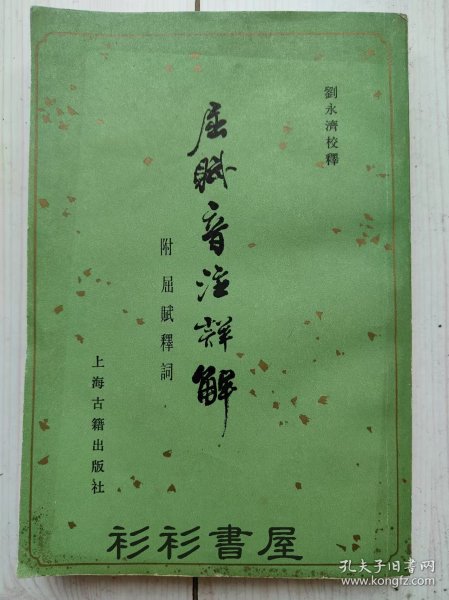 劉永濟校釋
屈賦音注詳解
附 屈賦釋詞
上海古籍出版社
衫衫書屋
孔夫子旧书网
www.kongfz.com